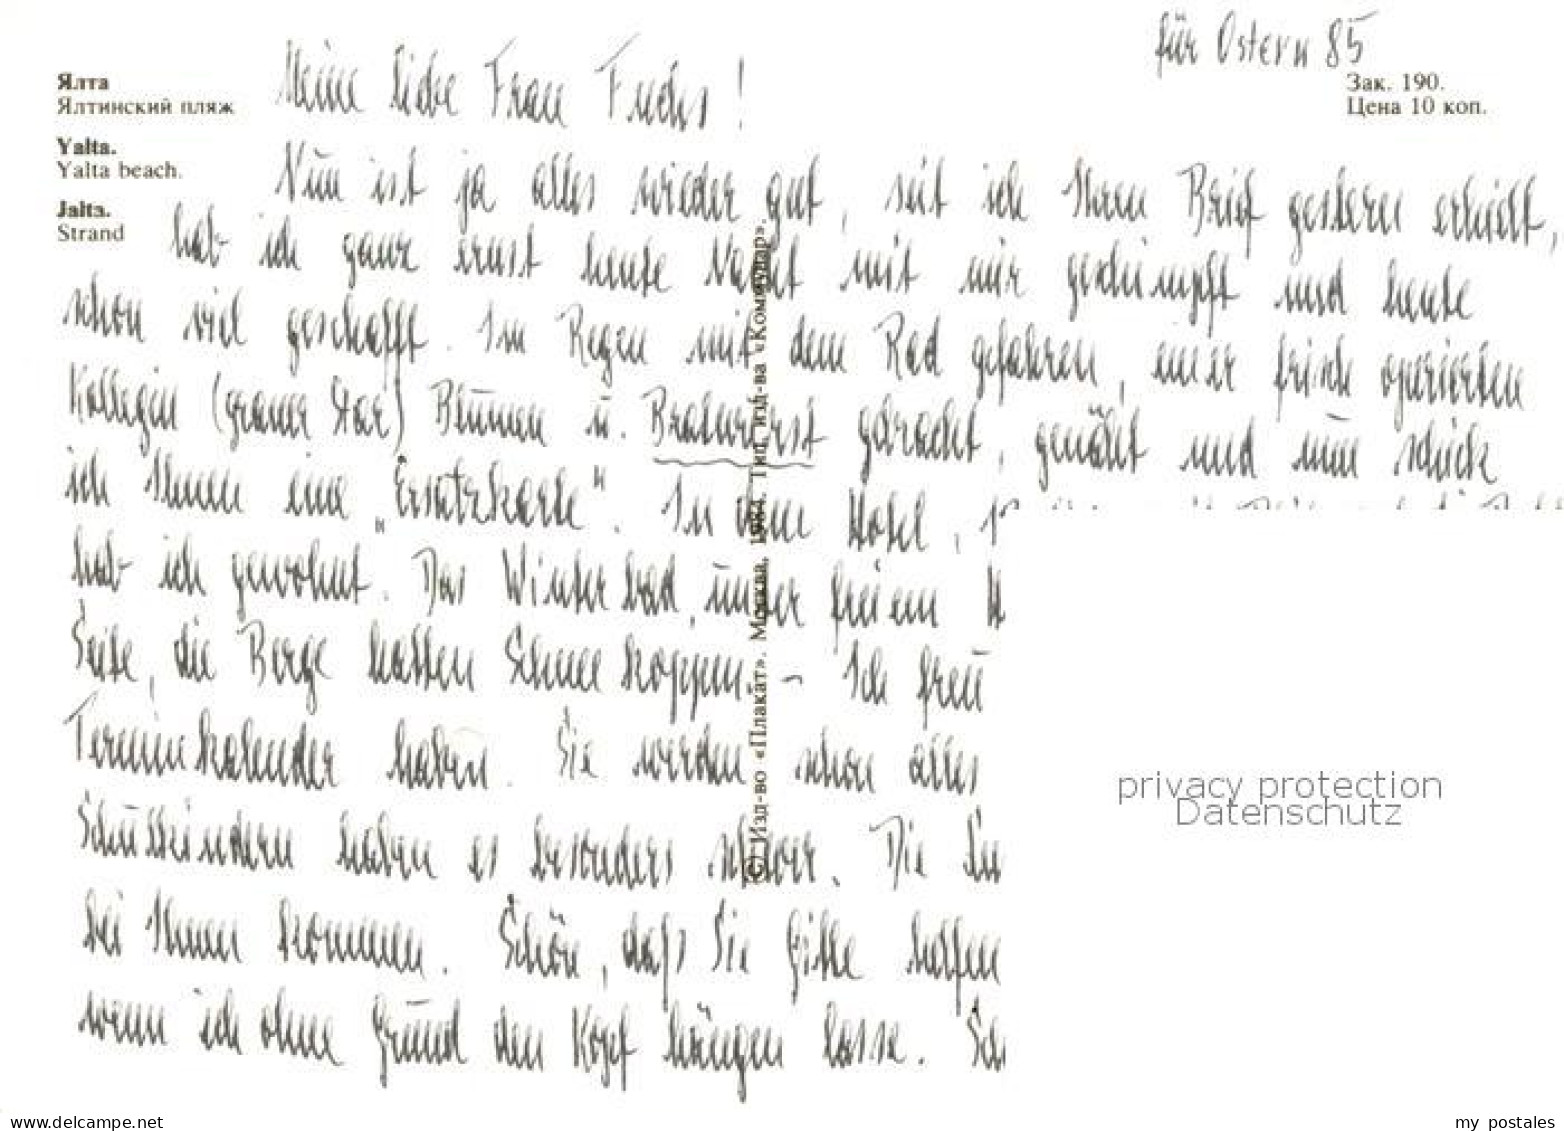 für Ostern 85
Ялта
Ялтинский пляж
Yalta.
Yalta beach.
Jalta.
Strand
Зак. 190.
Цена 10 коп.
Meine liebe Frau Fuchs!
Nun ist ja alles wieder gut, seit ich Ihren Brief gestern erhielt,
hab ich ganz ernst heute Nacht mit mir geschimpft und heute
schon viel geschafft. Im Regen mit dem Rad gefahren, einer frisch operierten
Kollegin (grauer Star) Blumen u. Bratwurst gebracht, genäht und nun schick
ich Ihnen eine „Ersatzkarte". In dem Hotel,
hab ich gewohnt. Das Winterbad, unter freiem
Seite, die Berge hatten Schneekoppen. - Ich freu
Terminkalender haben. Sie werden schon alles
Schulkindern haben es besonders schwer. Die
bei Ihnen kommen. Schön, daß Sie Gitte helfen
wenn ich ohne Grund den Kopf hängen lasse.
© Изд-во «Плакат». Москва, 1984. Тип. изд-ва «Коммунар».
privacy protection
Datenschutz
www.delcampe.net
my_postales